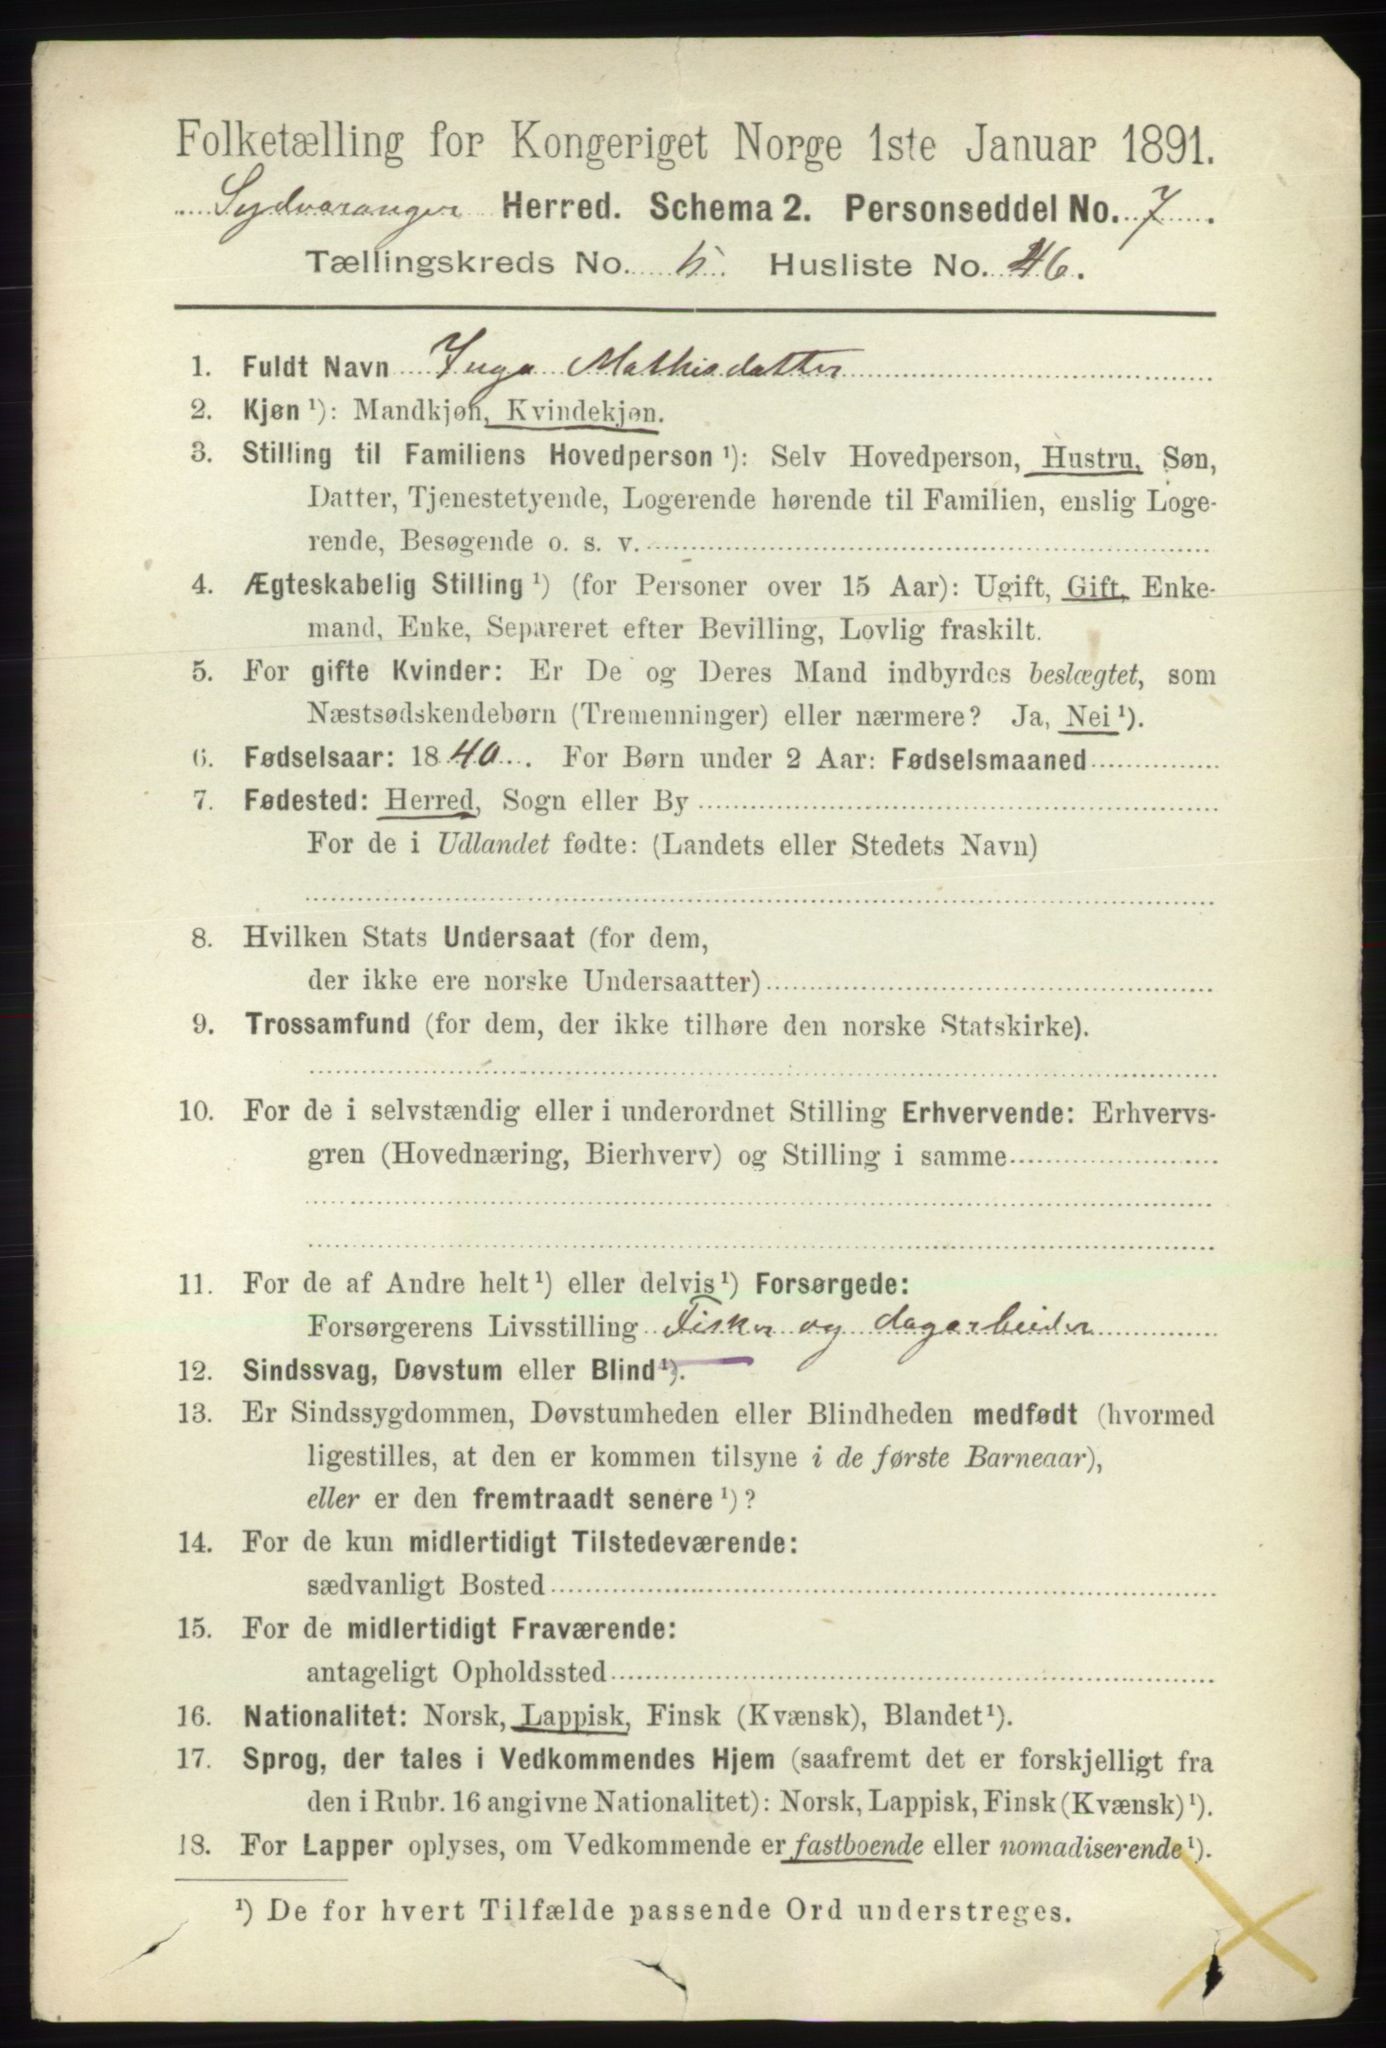 Folketælling for Kongeriget Norge 1ste Januar 1891.
Sydvaranger Herred. Schema 2. Personseddel No. 7.
Tællingskreds No. Husliste No. 46.
1. Fuldt Navn Inga Mathisdatter
2. Kjøn ¹): Mandkjøn, Kvindekjøn.
3. Stilling til Familiens Hovedperson ¹): Selv Hovedperson, Hustru, Søn,
Datter, Tjenestetyende, Logerende hørende til Familien, enslig Loge-
rende, Besøgende o. s. v.
4. Ægteskabelig Stilling ¹) (for Personer over 15 Aar): Ugift, Gift, Enke-
mand, Enke, Separeret efter Bevilling, Lovlig fraskilt.
5. For gifte Kvinder: Er De og Deres Mand indbyrdes beslægtet, som
Næstsødskendebørn (Tremenninger) eller nærmere? Ja, Nei ¹).
6. Fødselsaar: 1840. For Børn under 2 Aar: Fødselsmaaned
7. Fødested: Herred, Sogn eller By
For de i Udlandet fødte: (Landets eller Stedets Navn)
8. Hvilken Stats Undersaat (for dem,
der ikke ere norske Undersaatter)
9. Trossamfund (for dem, der ikke tilhøre den norske Statskirke).
10. For de i selvstændig eller i underordnet Stilling Erhvervende: Erhvervs-
gren (Hovednæring, Bierhverv) og Stilling i samme
11. For de af Andre helt ¹) eller delvis ¹) Forsørgede:
Forsørgerens Livsstilling Fisker og dagarbeider
12. Sindssvag, Døvstum eller Blind ¹).
13. Er Sindssygdommen, Døvstumheden eller Blindheden medfødt (hvormed
ligestilles, at den er kommen tilsyne i de første Barneaar),
eller er den fremtraadt senere ¹)?
14. For de kun midlertidigt Tilstedeværende:
sædvanligt Bosted
15. For de midlertidigt Fraværende:
antageligt Opholdssted
16. Nationalitet: Norsk, Lappisk, Finsk (Kvænsk), Blandet ¹).
17. Sprog, der tales i Vedkommendes Hjem (saafremt det er forskjelligt fra
den i Rubr. 16 angivne Nationalitet): Norsk, Lappisk, Finsk (Kvænsk) ¹).
18. For Lapper oplyses, om Vedkommende er fastboende eller nomadiserende ¹).
¹) De for hvert Tilfælde passende Ord understreges.